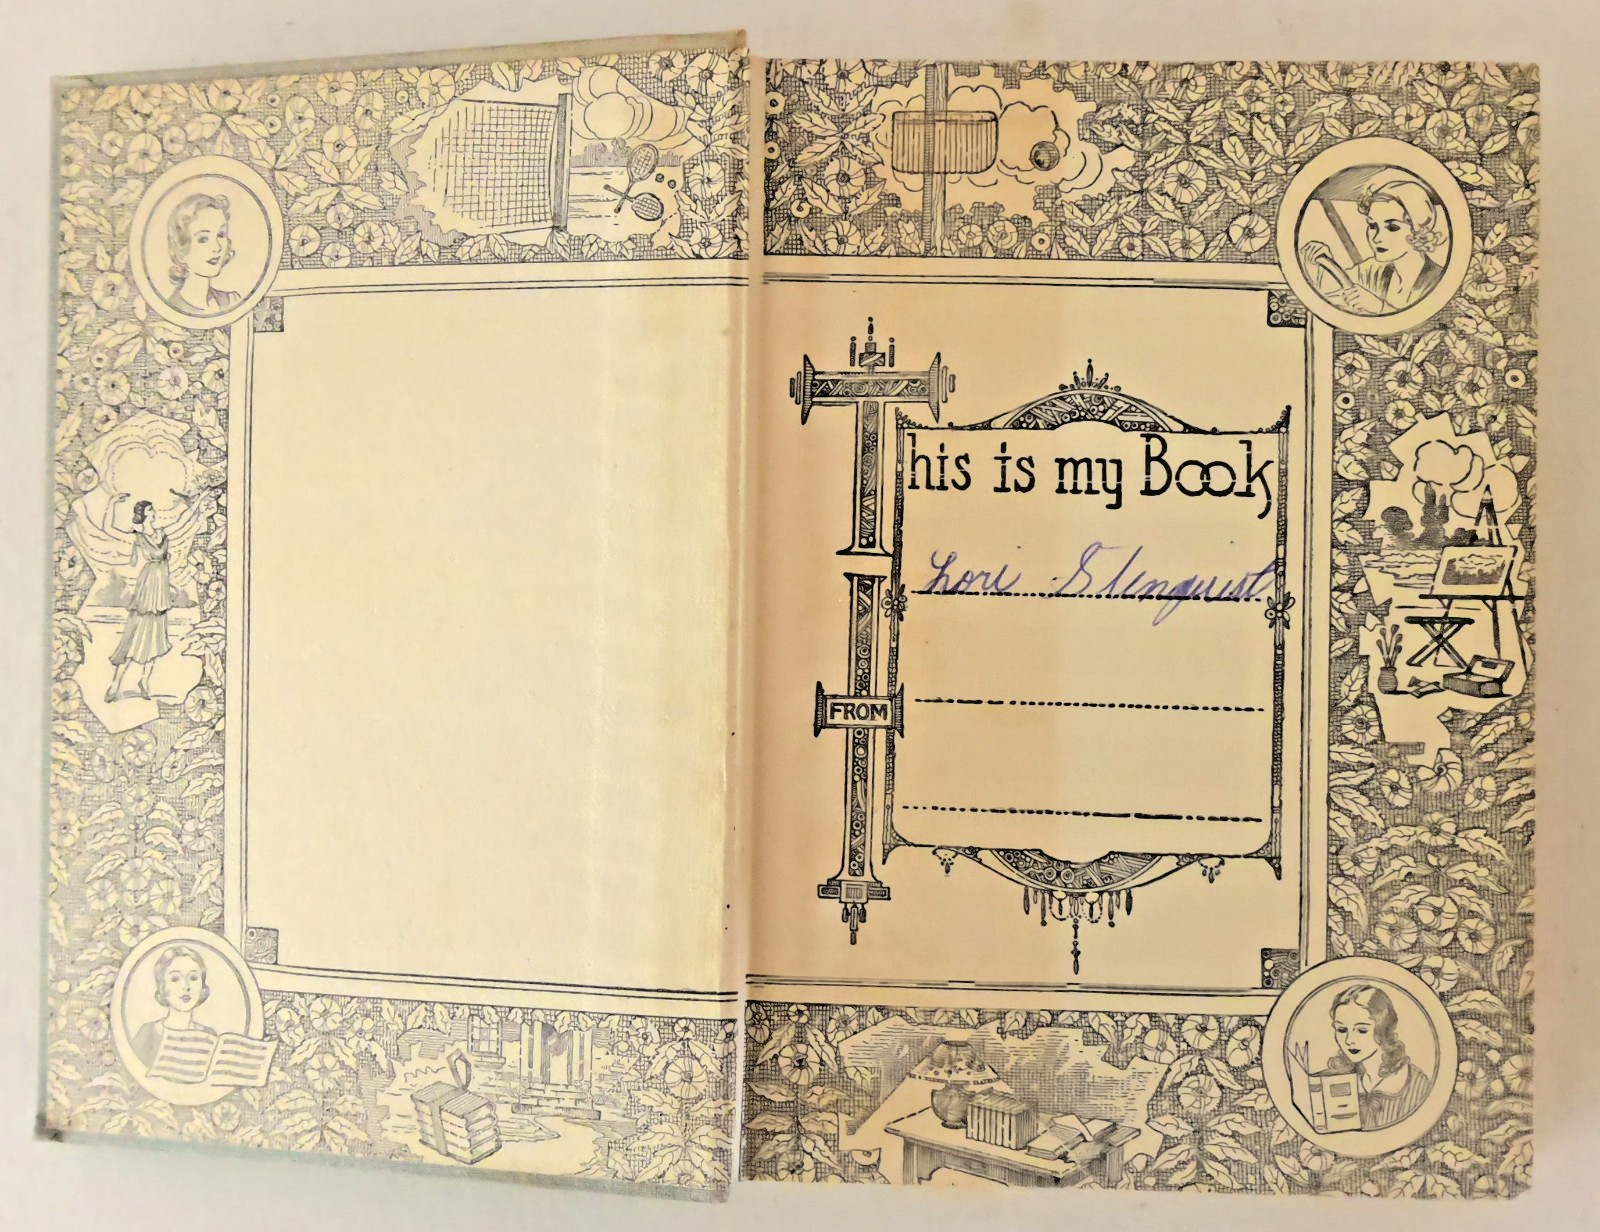 This is my Book
Lori Stenquist
FROM